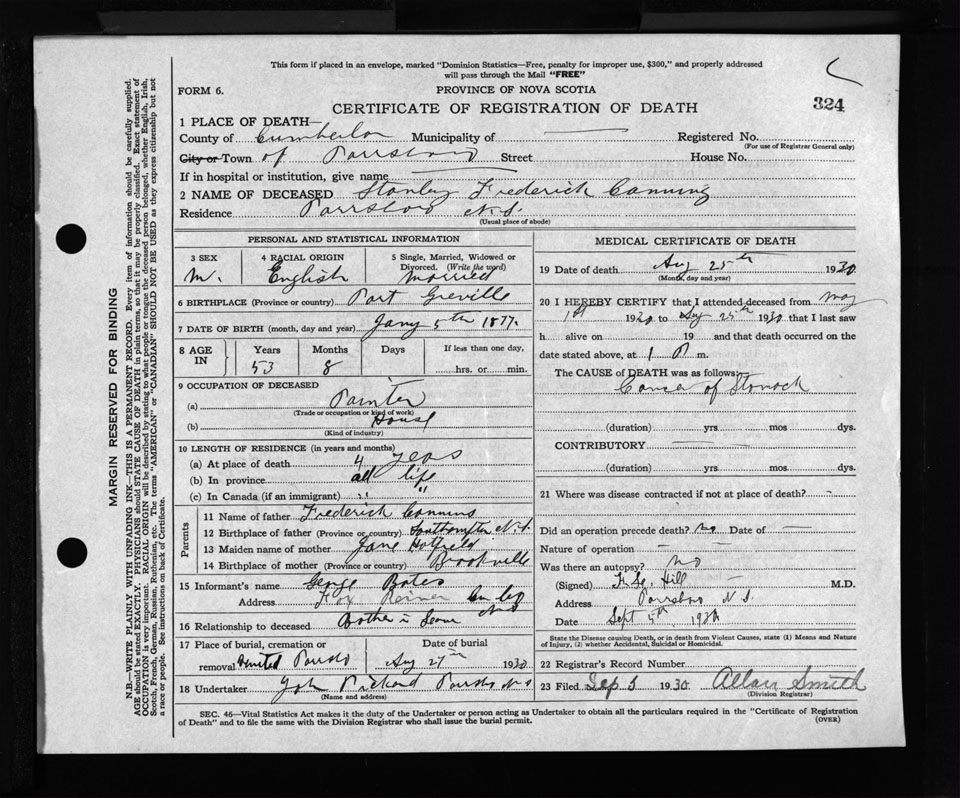 This form if placed in an envelope, marked "Dominion Statistics—Free, penalty for improper use, $300," and properly addressed
will pass through the Mail "FREE"
FORM 6.
PROVINCE OF NOVA SCOTIA
324
CERTIFICATE OF REGISTRATION OF DEATH
1 PLACE OF DEATH—
County of Cumberlan Municipality of — Registered No.
(For use of Registrar General only)
City or Town of Parrsboro Street House No.
If in hospital or institution, give name —
2 NAME OF DECEASED Stanley Frederick Canning
Residence Parrsboro N.S.
(Usual place of abode)
PERSONAL AND STATISTICAL INFORMATION
3 SEX 4 RACIAL ORIGIN 5 Single, Married, Widowed or
Divorced. (Write the word)
M. English Married
6 BIRTHPLACE (Province or country) Port Greville
7 DATE OF BIRTH (month, day and year) Jany 5th 1877.
8 AGE IN Years Months Days If less than one day,
53 8 hrs. or min.
9 OCCUPATION OF DECEASED
(a) Painter
(Trade or occupation or kind of work)
(b) House
(Kind of industry)
10 LENGTH OF RESIDENCE (in years and months)
(a) At place of death 4 years
(b) In province all life
(c) In Canada (if an immigrant) " "
Parents
11 Name of father Frederick Canning
12 Birthplace of father (Province or country) Southampton N.S.
13 Maiden name of mother Jane Hatfield
14 Birthplace of mother (Province or country) Brookville
15 Informant's name George Bates
Address Fox River Cum Co
N S
16 Relationship to deceased Brother in
17 Place of burial, cremation or
removal Parrsboro
Date of burial
Aug 27th 1930
18 Undertaker Richard Parrsboro N S
(Name and address)
MEDICAL CERTIFICATE OF DEATH
19 Date of death Aug 25th 1930
(Month, day and year)
20 I HEREBY CERTIFY that I attended deceased from May
1st 1930 to Aug 25th 1930 that I last saw
h alive on 19 and that death occurred on the
date stated above, at 1 P m.
The CAUSE of DEATH was as follows:
Cancer of Stomach
(duration) yrs mos dys.
CONTRIBUTORY —
(duration) yrs mos dys.
21 Where was disease contracted if not at place of death? -
Did an operation precede death? no Date of —
Nature of operation — —
Was there an autopsy? no
(Signed) Hill — M.D.
Address Parrsboro N S.
Date Sept 5th, 1930
State the Disease causing Death, or in death from Violent Causes, state (1) Means and Nature
of Injury, (2) whether Accidental, Suicidal or Homicidal.
22 Registrar's Record Number
23 Filed Sep 5 1930 Allan Smith
(Division Registrar)
SEC. 46—Vital Statistics Act makes it the duty of the Undertaker or person acting as Undertaker to obtain all the particulars required in the "Certificate of Registration
of Death" and to file the same with the Division Registrar who shall issue the burial permit.
(OVER)
MARGIN RESERVED FOR BINDING
N.B.—WRITE PLAINLY WITH UNFADING INK—THIS IS A PERMANENT RECORD. Every item of information should be carefully supplied.
AGE should be stated EXACTLY. PHYSICIANS should STATE CAUSE OF DEATH in plain terms, so that it may be properly classified. Exact statement of
OCCUPATION is very important. RACIAL ORIGIN will be described by stating to what people or tongue the deceased person belonged, whether English, Irish,
Scotch, French, German, Russian, Ruthenian, etc. The terms "AMERICAN" or "CANADIAN" SHOULD NOT BE USED as they express citizenship but not
a race or people. See instructions on back of Certificate.